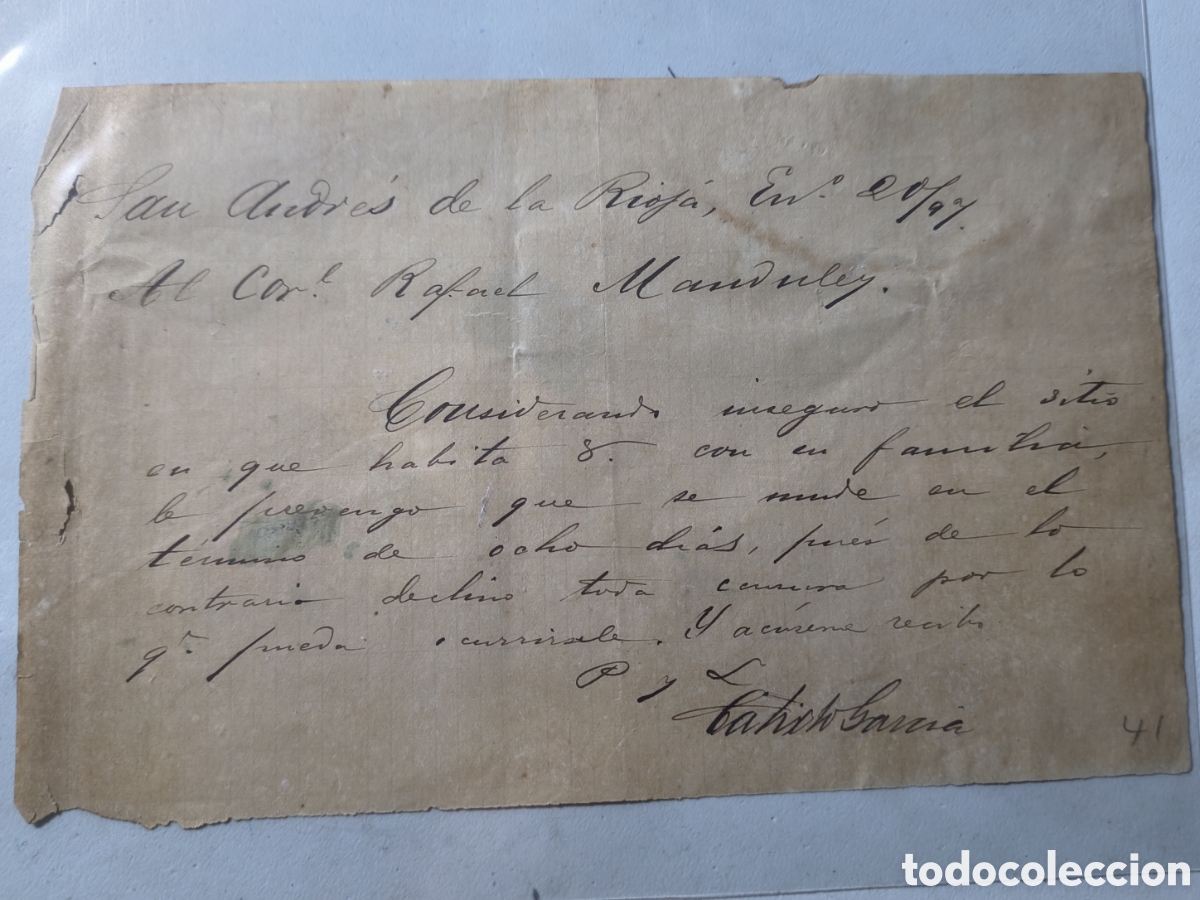 San Andrés de la Rioja, En.º 20/97.
Al Cor.l Rafael Manduley.
Considerando inseguro el sitio
en que habita V. con su familia,
le prevengo que se mude en el
término de ocho dias, pués de lo
contrario declino toda censura por lo
q.e pueda ocurrirle. Y acúseme recibo
P y L
Calixto Garcia
41
todocoleccion